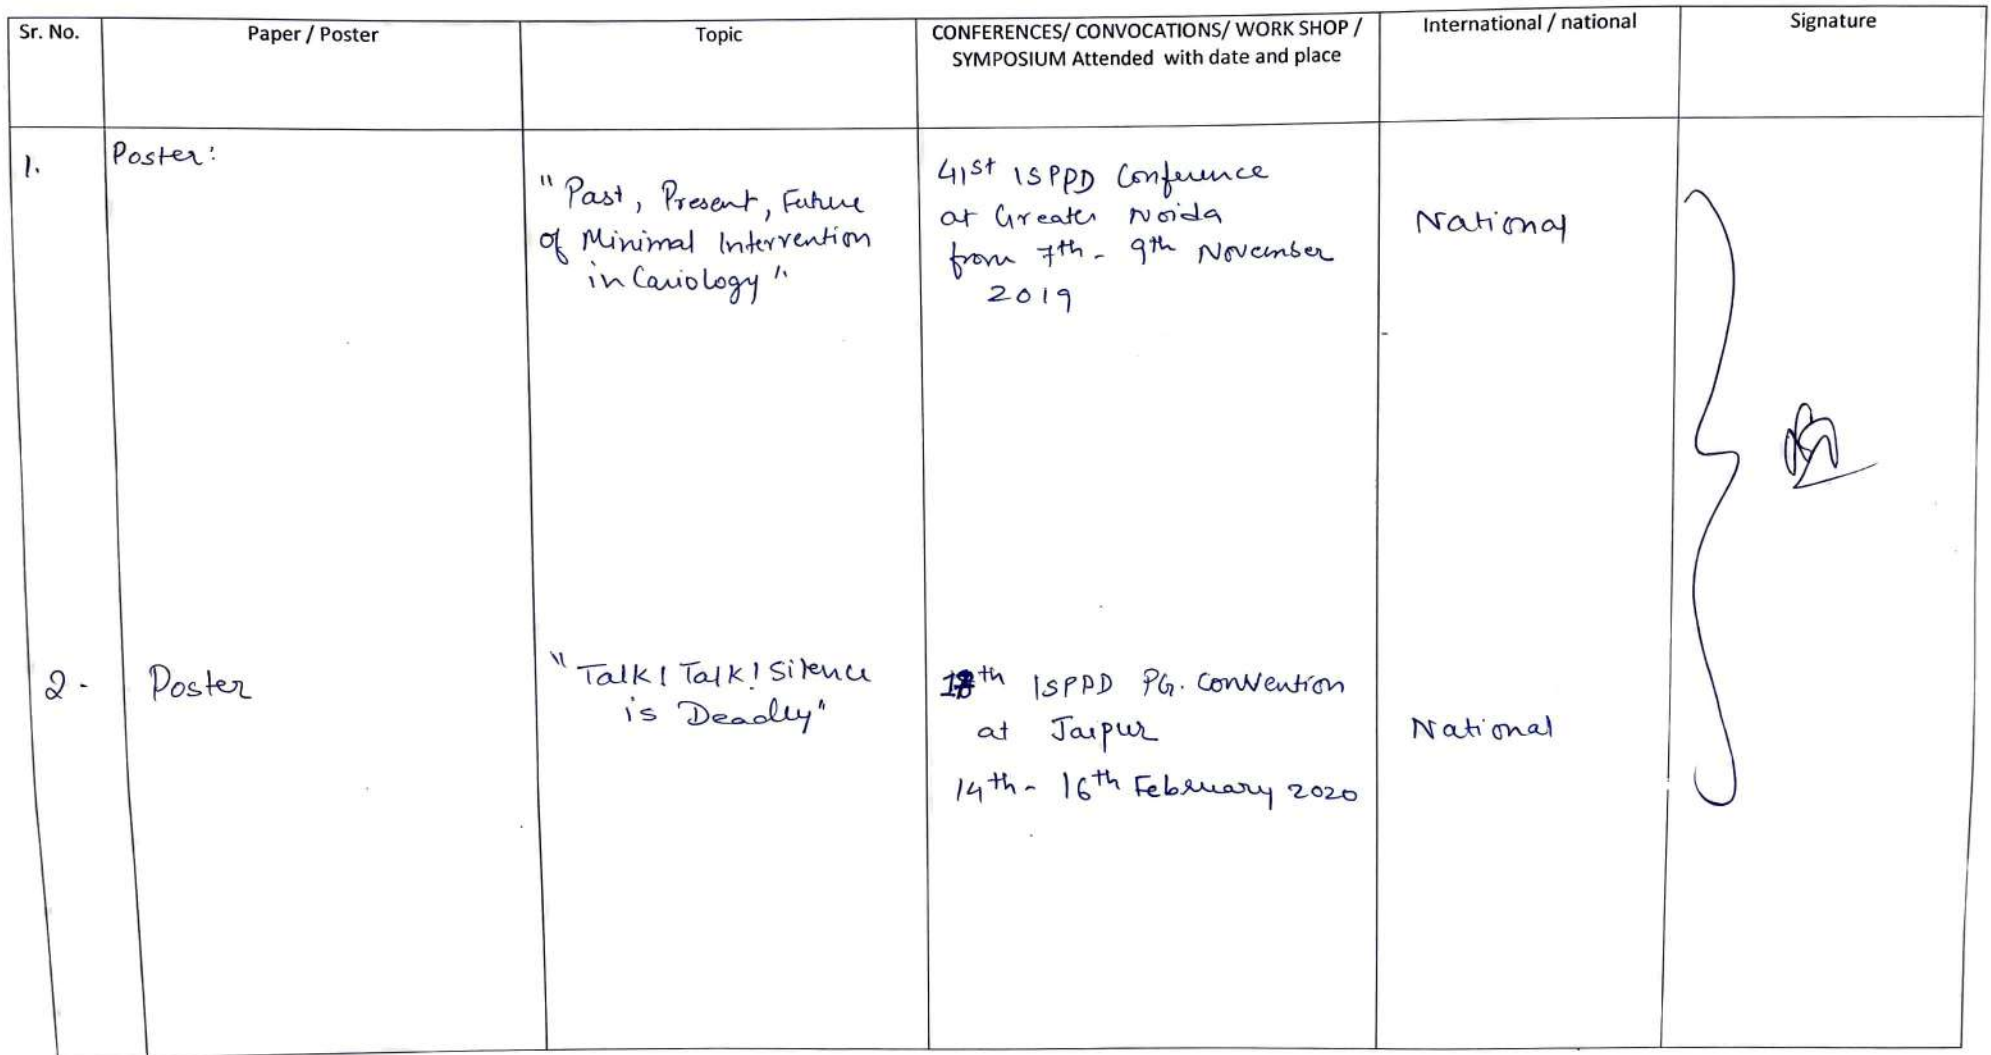 Sr. No.
Paper / Poster
Topic
CONFERENCES/ CONVOCATIONS/ WORK SHOP /
SYMPOSIUM Attended with date and place
International / national
Signature
1.
Poster:
"Past, Present, Future
of Minimal Intervention
in Cariology"
41st ISPPD Conference
at Greater Noida
from 7th - 9th November
2019
National
2 -
Poster
"Talk! Talk! Silence
is Deadly"
ISPPD PG. Convention
at Jaipur
14th - 16th February 2020
National